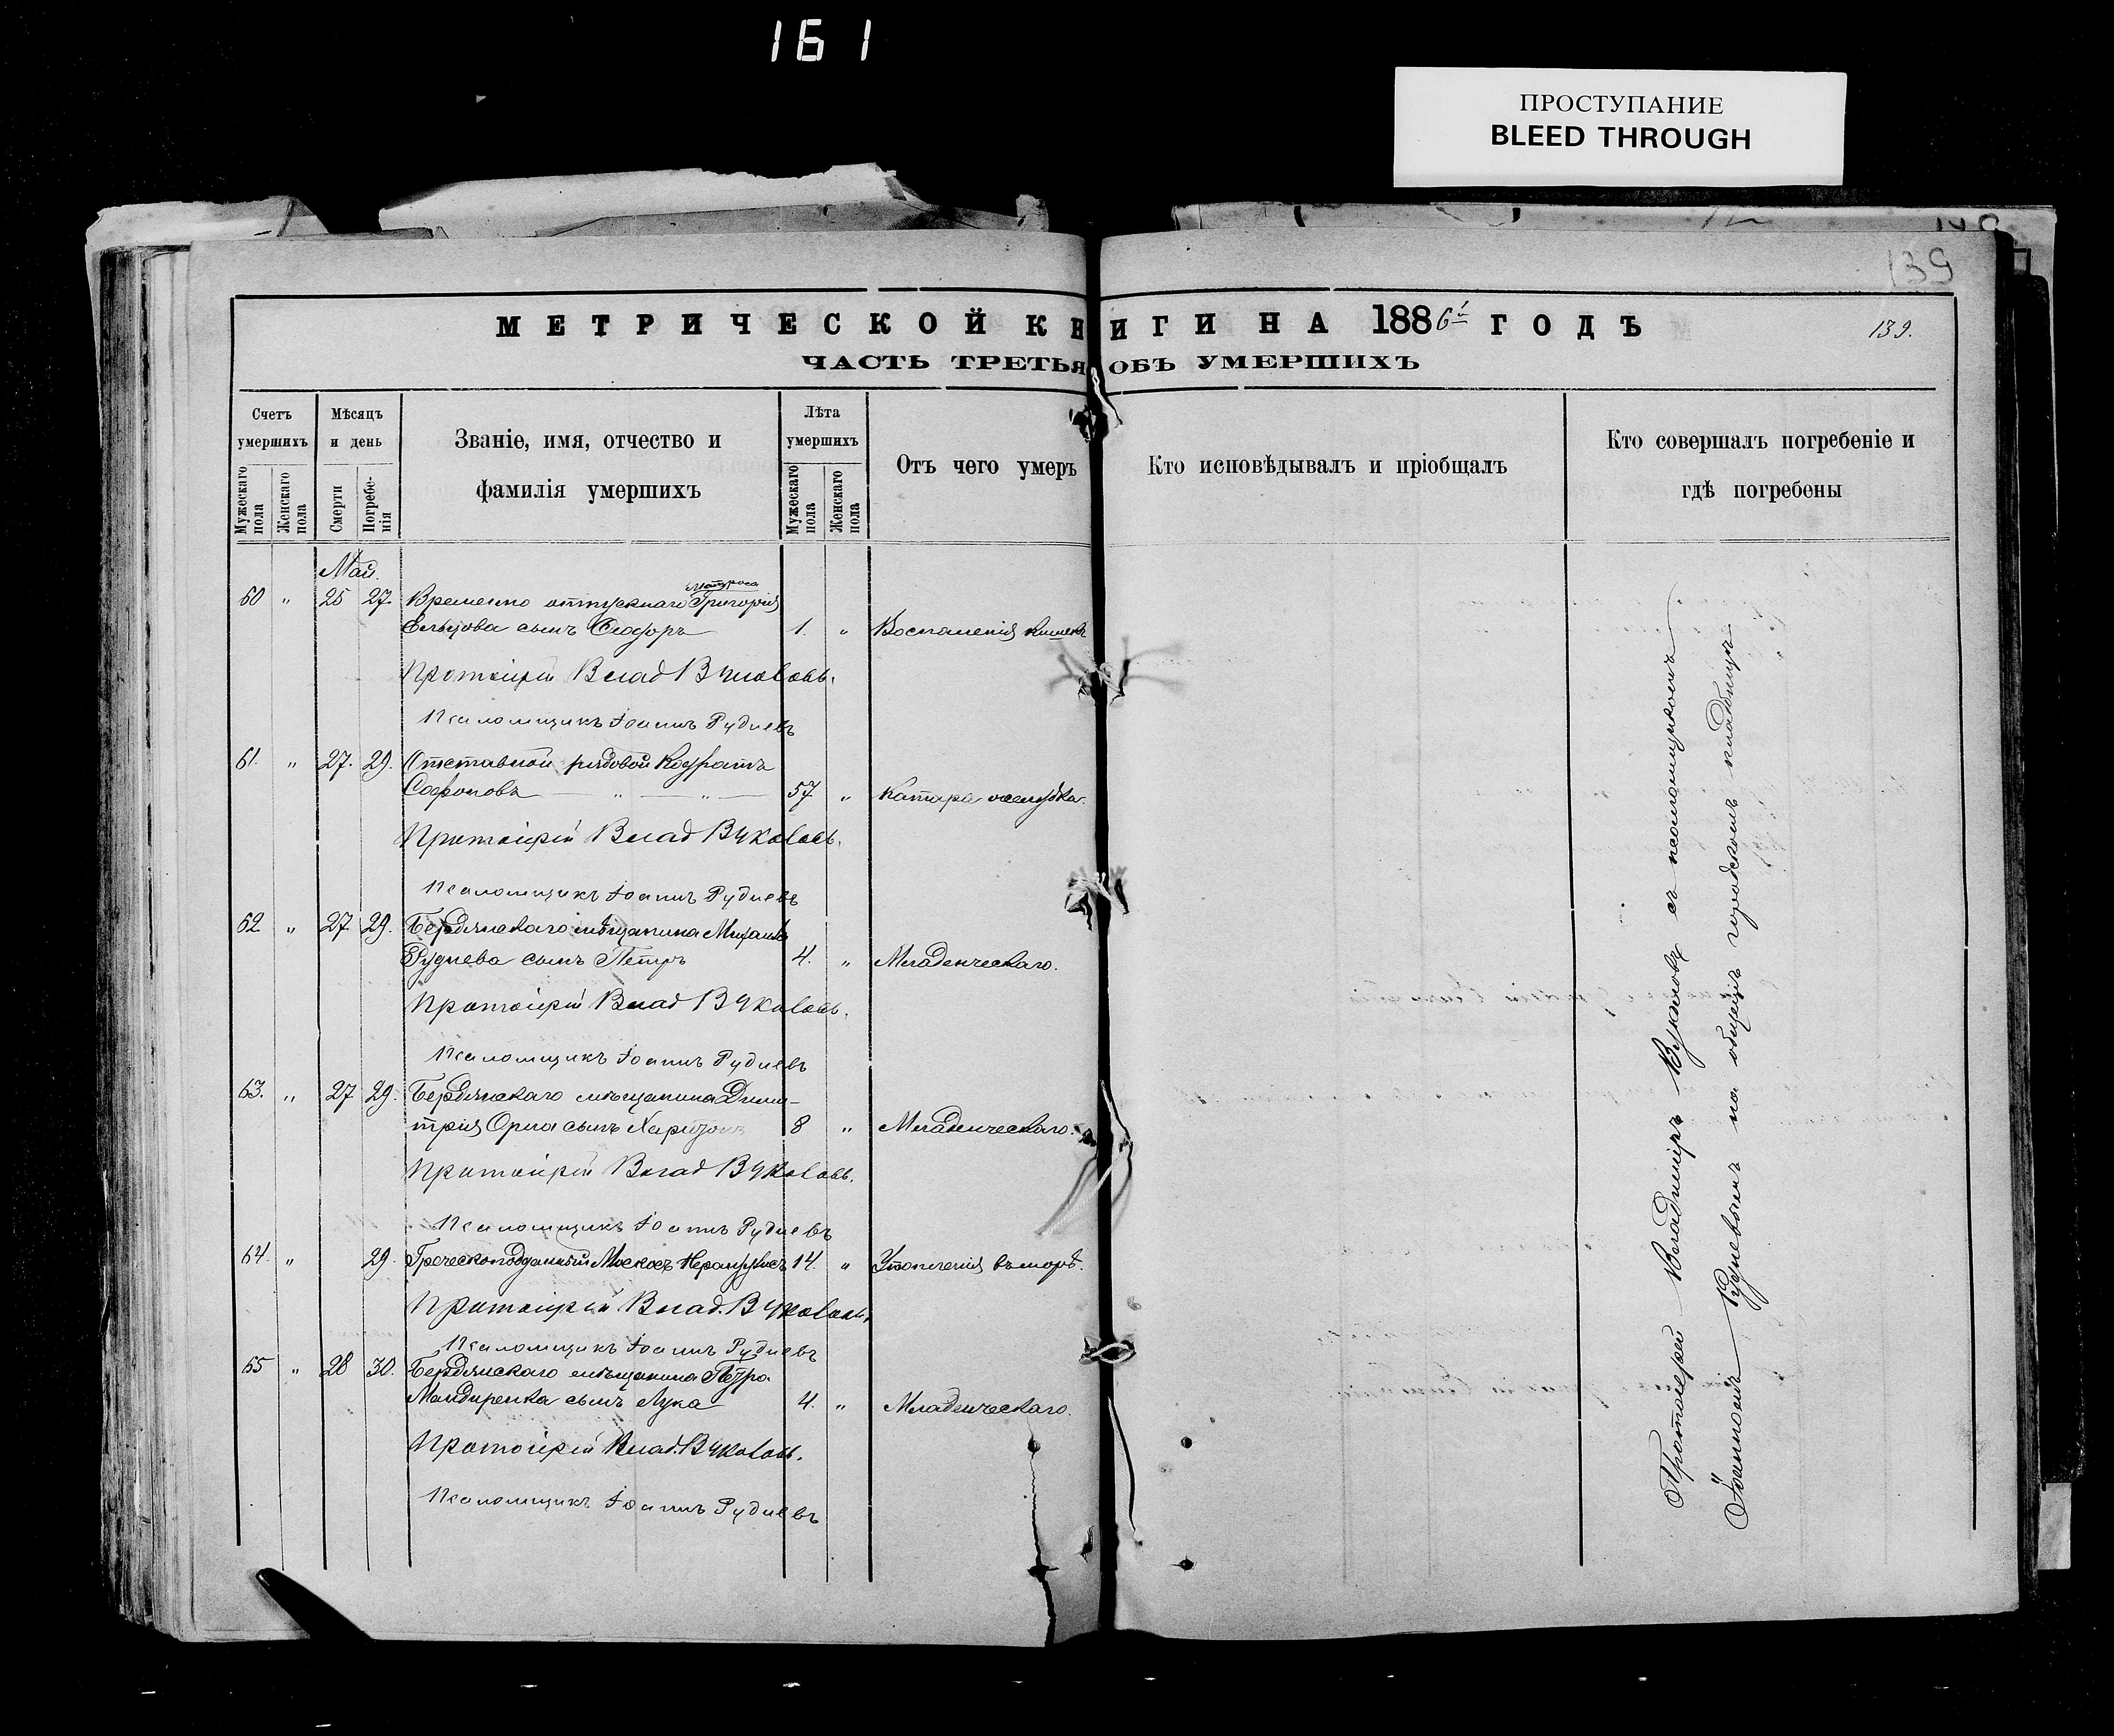 161
ПРОСТУПАНИЕ
BLEED THROUGH
139
МЕТРИЧЕСКОЙ КНИГИ НА 1886й ГОДЪ
139.
ЧАСТЬ ТРЕТЬЯ ОБЪ УМЕРШИХЪ
Счетъ умершихъ
Мужескаго пола
Женскаго пола
Мѣсяцъ и день
Смерти
Погребенія
Званіе, имя, отчество и фамилія умершихъ
Лѣта умершихъ
Мужескаго пола
Женскаго пола
Отъ чего умеръ
Кто исповѣдывалъ и пріобщалъ
Кто совершалъ погребеніе и гдѣ погребены
Май.
матроса
60 " 25 27. Временно отпускнаго Григорія
Ельцова сынъ 1. " Воспаленія кишекъ
Протоіерей Влад Вуколовъ.
Псаломщикъ Іоаннъ Рудневъ
61. " 27. 29. Отставной рядовой Кодратъ
Софоновъ — " — " — 57 " Катара желудка.
Протоіерей Влад Вуколовъ.
Псаломщикъ Іоаннъ Рудневъ
62 " 27 29. Бердянскаго мѣщанина Михаила
Руднева сынъ Петръ 4. " Младенческаго.
Протоіерей Влад Вуколовъ.
Псаломщикъ Іоаннъ Рудневъ
63. " 27 29. Бердянскаго мѣщанина Дими-
трія Орла сынъ Харитонъ 8 " Младенческаго.
Протоіерей Влад Вуколовъ.
Псаломщикъ Іоаннъ Рудневъ
64. " 29. Греческоподданный 14. " Утопленія въ морѣ.
Протоіерей Влад. Вуколовъ.
Псаломщикъ Іоаннъ Рудневъ
65 " 28 30. Бердянскаго мѣщанина Петра
Мандиренка сынъ Лука 4. " Младенческаго.
Протоіерей Влад. Вуколовъ.
Псаломщикъ Іоаннъ Рудневъ
Протоіерей Владиміръ Вуколовъ съ псаломщикомъ
Іоанномъ Рудневымъ на общемъ городскомъ кладбищѣ